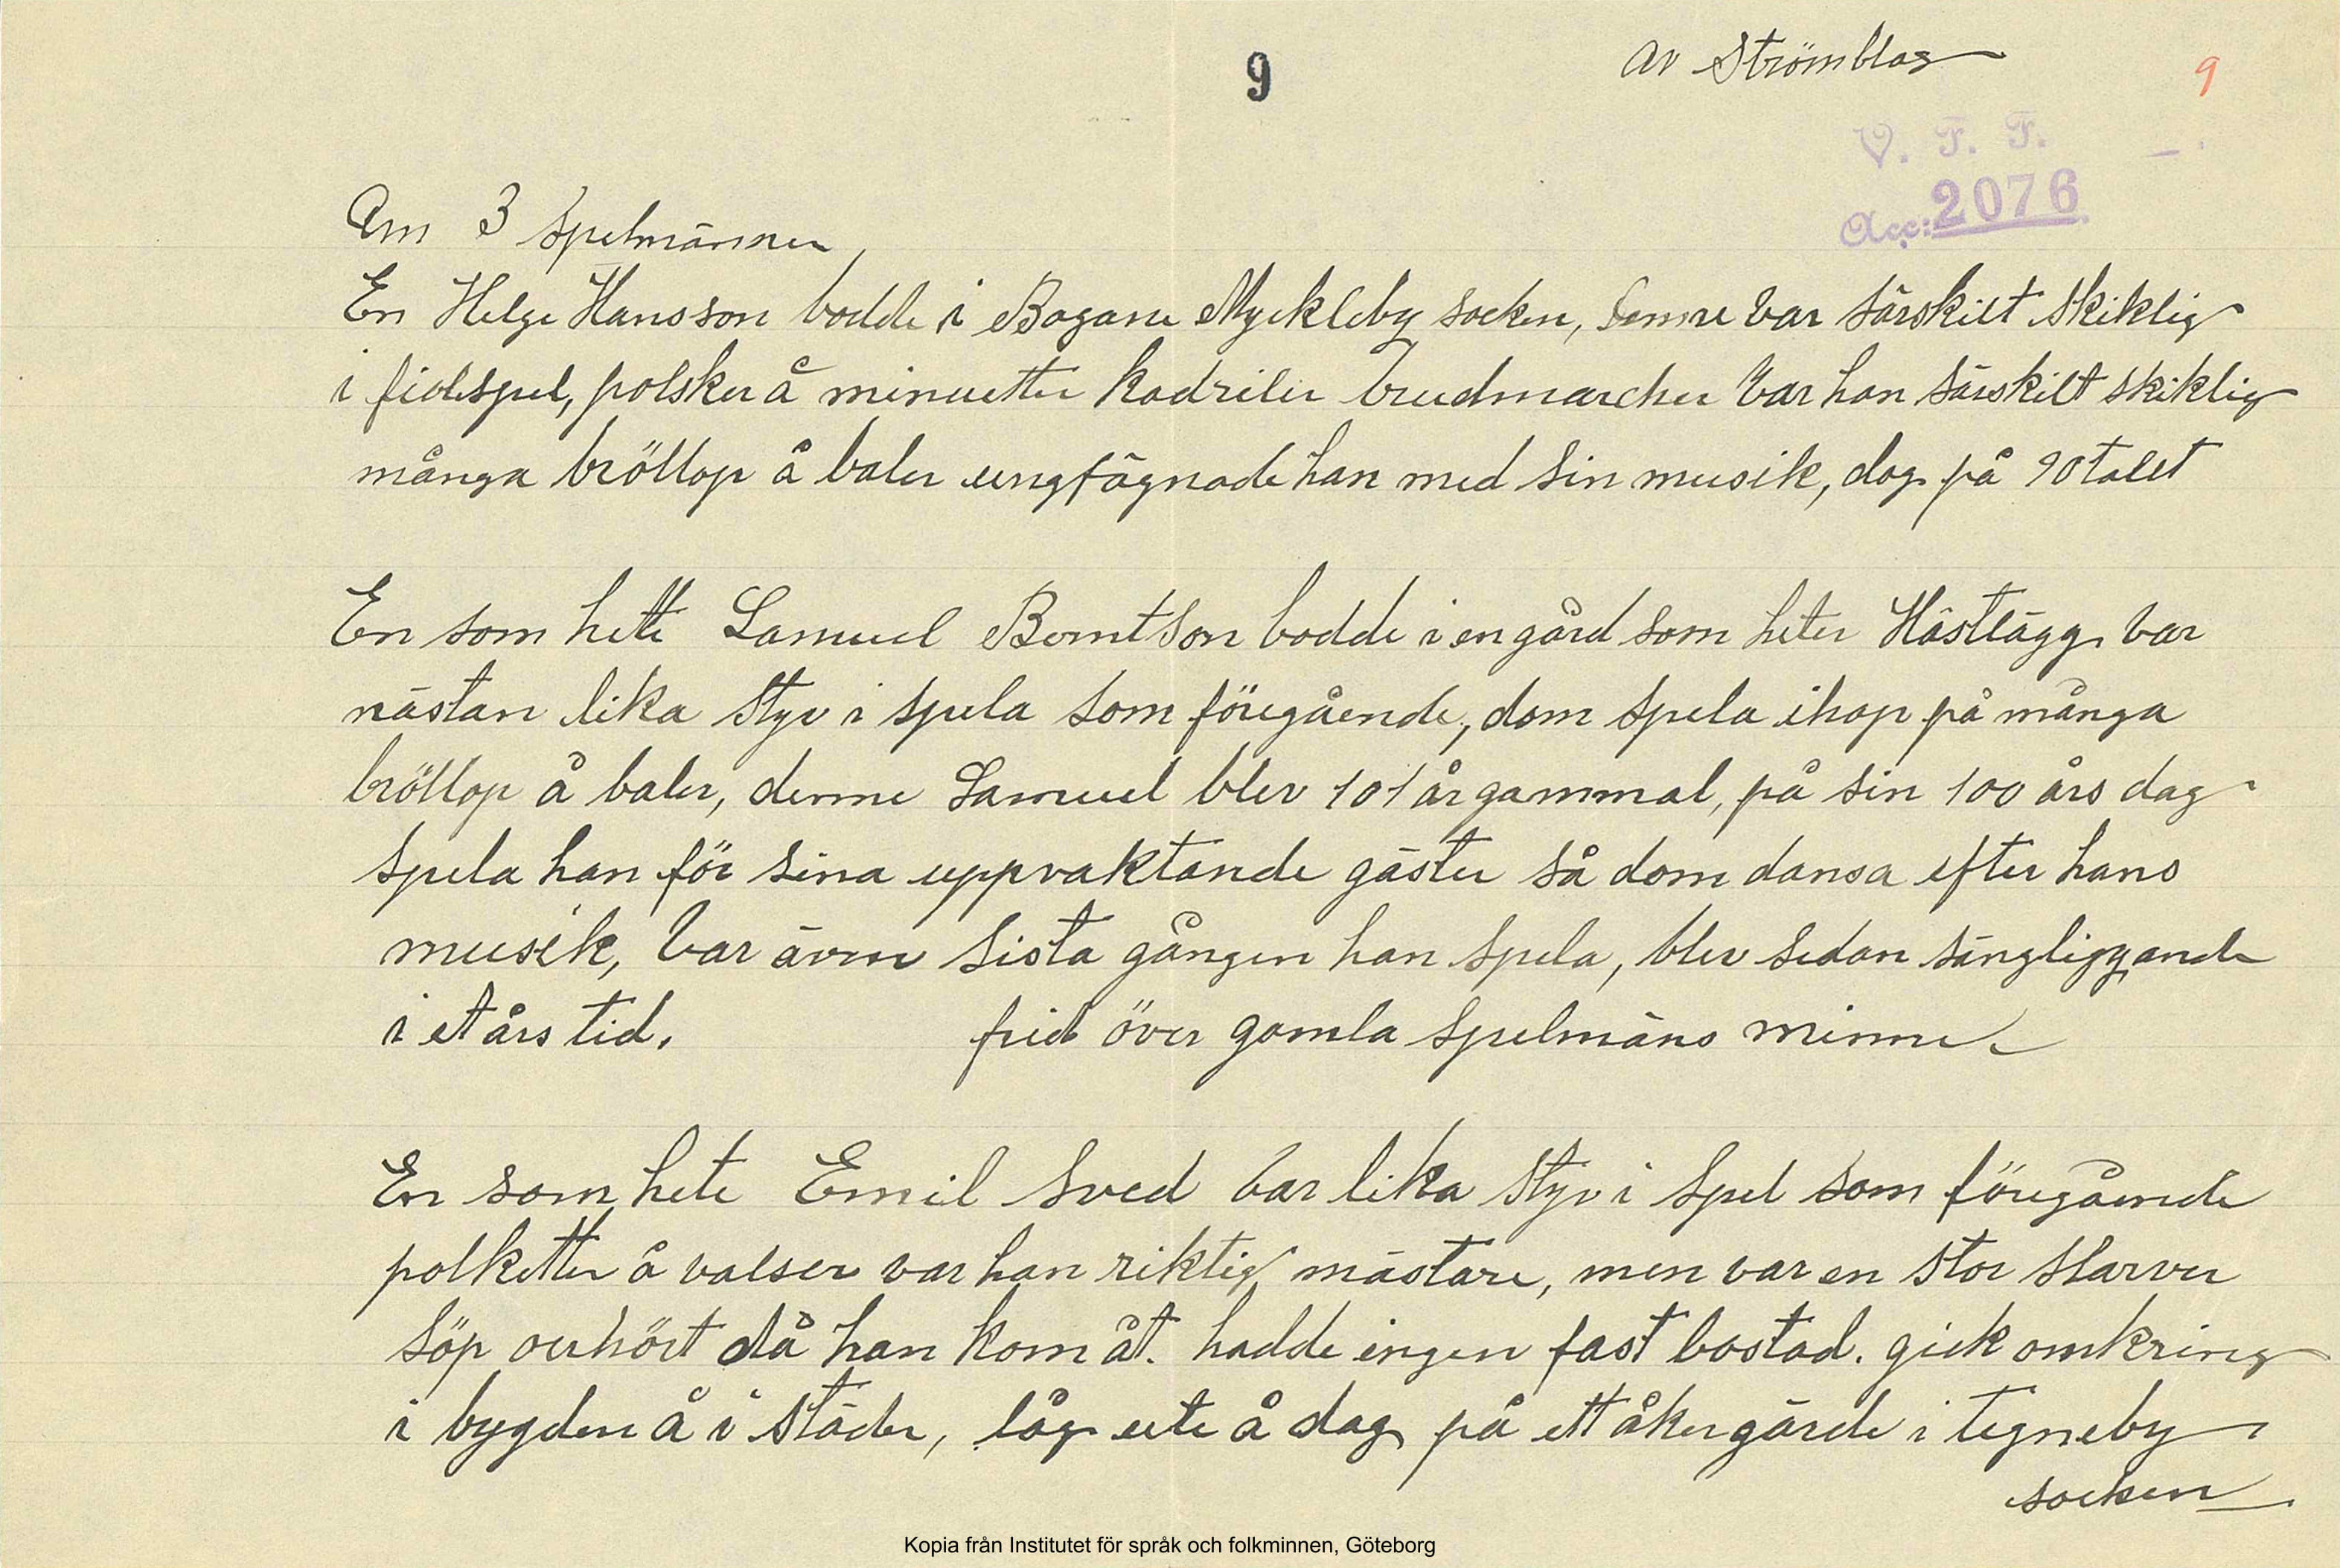 9
av Strömblag
9
V. F. F.
Acc: 2076
Om 3 spelmänner,
En Helge Hansson bodde i Bogane Myckleby socken, denne var särskilt skiklig
i fiolspel, polsker å minuetter kadriler brudmarcher var han särskilt skiklig
många bröllop å baler ungfägnade han med sin musik, dog på 90 talet
En som hette Samuel Berntson bodde i en gård som heter Hästlägg var
nästan lika styv i spela som föregående, dom spela ihop på många
bröllop å baler, denne Samuel blev 101 år gammal, på sin 100 års dag
spela han för sina uppvaktande gäster så dom dansa efter hans
musik, var även sista gången han spela, blev sedan sängliggande
i et års tid. frid över gamla spelmäns minne.
En som hete Emil Sved var lika styv i spel som föregående
polketter å valser var han riktig mästare, men var en stor slarver
söp oerhört då han kom åt. hadde ingen fast bostad. gick omkring
i bygden å i städer, låg ute å dog på ett åkergärde i tegneby
socken.
Kopia från Institutet för språk och folkminnen, Göteborg